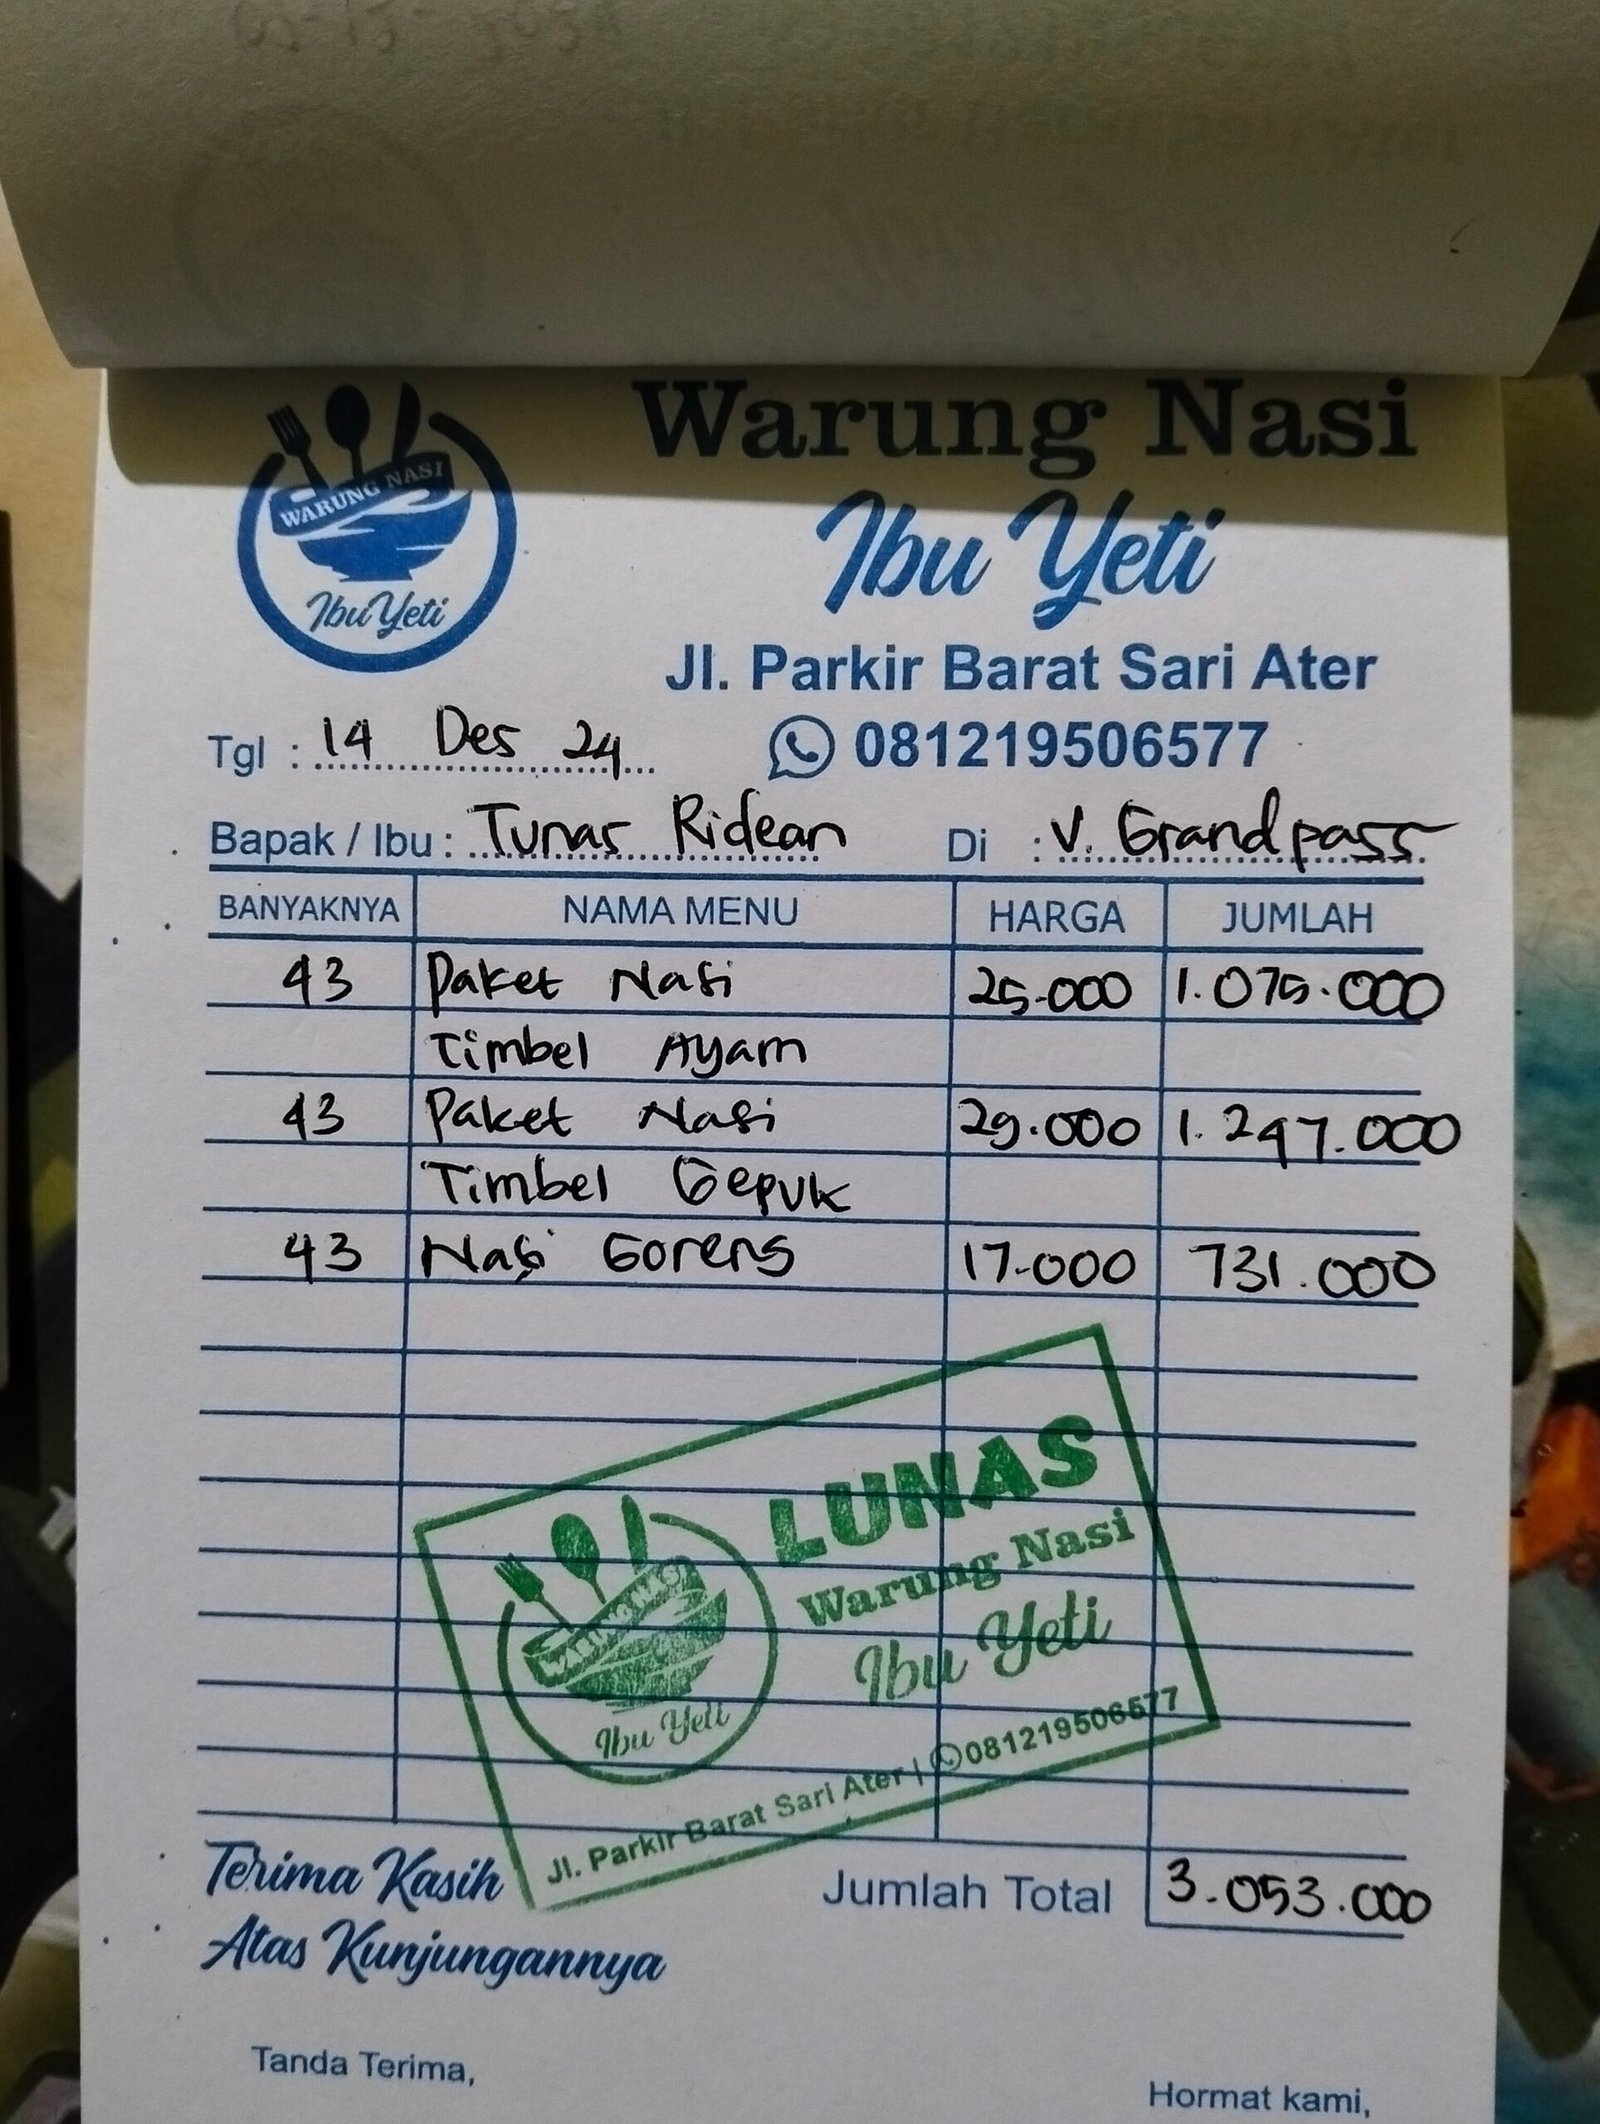 Warung Nasi
Ibu Yeti
WARUNG NASI
Ibu Yeti
Jl. Parkir Barat Sari Ater
Tgl : 14 Des 24
081219506577
Bapak / Ibu : Tunas Ridean Di : V. Grandpass
BANYAKNYA NAMA MENU HARGA JUMLAH
43 Paket Nasi 25.000 1.075.000
Timbel Ayam
43 Paket Nasi 29.000 1.247.000
Timbel Gepuk
43 Nasi Goreng 17.000 731.000
LUNAS
Warung Nasi
Ibu Yeti
Ibu Yeti
Jl. Parkir Barat Sari Ater | 081219506577
Terima Kasih
Atas Kunjungannya
Jumlah Total 3.053.000
Tanda Terima,
Hormat kami,